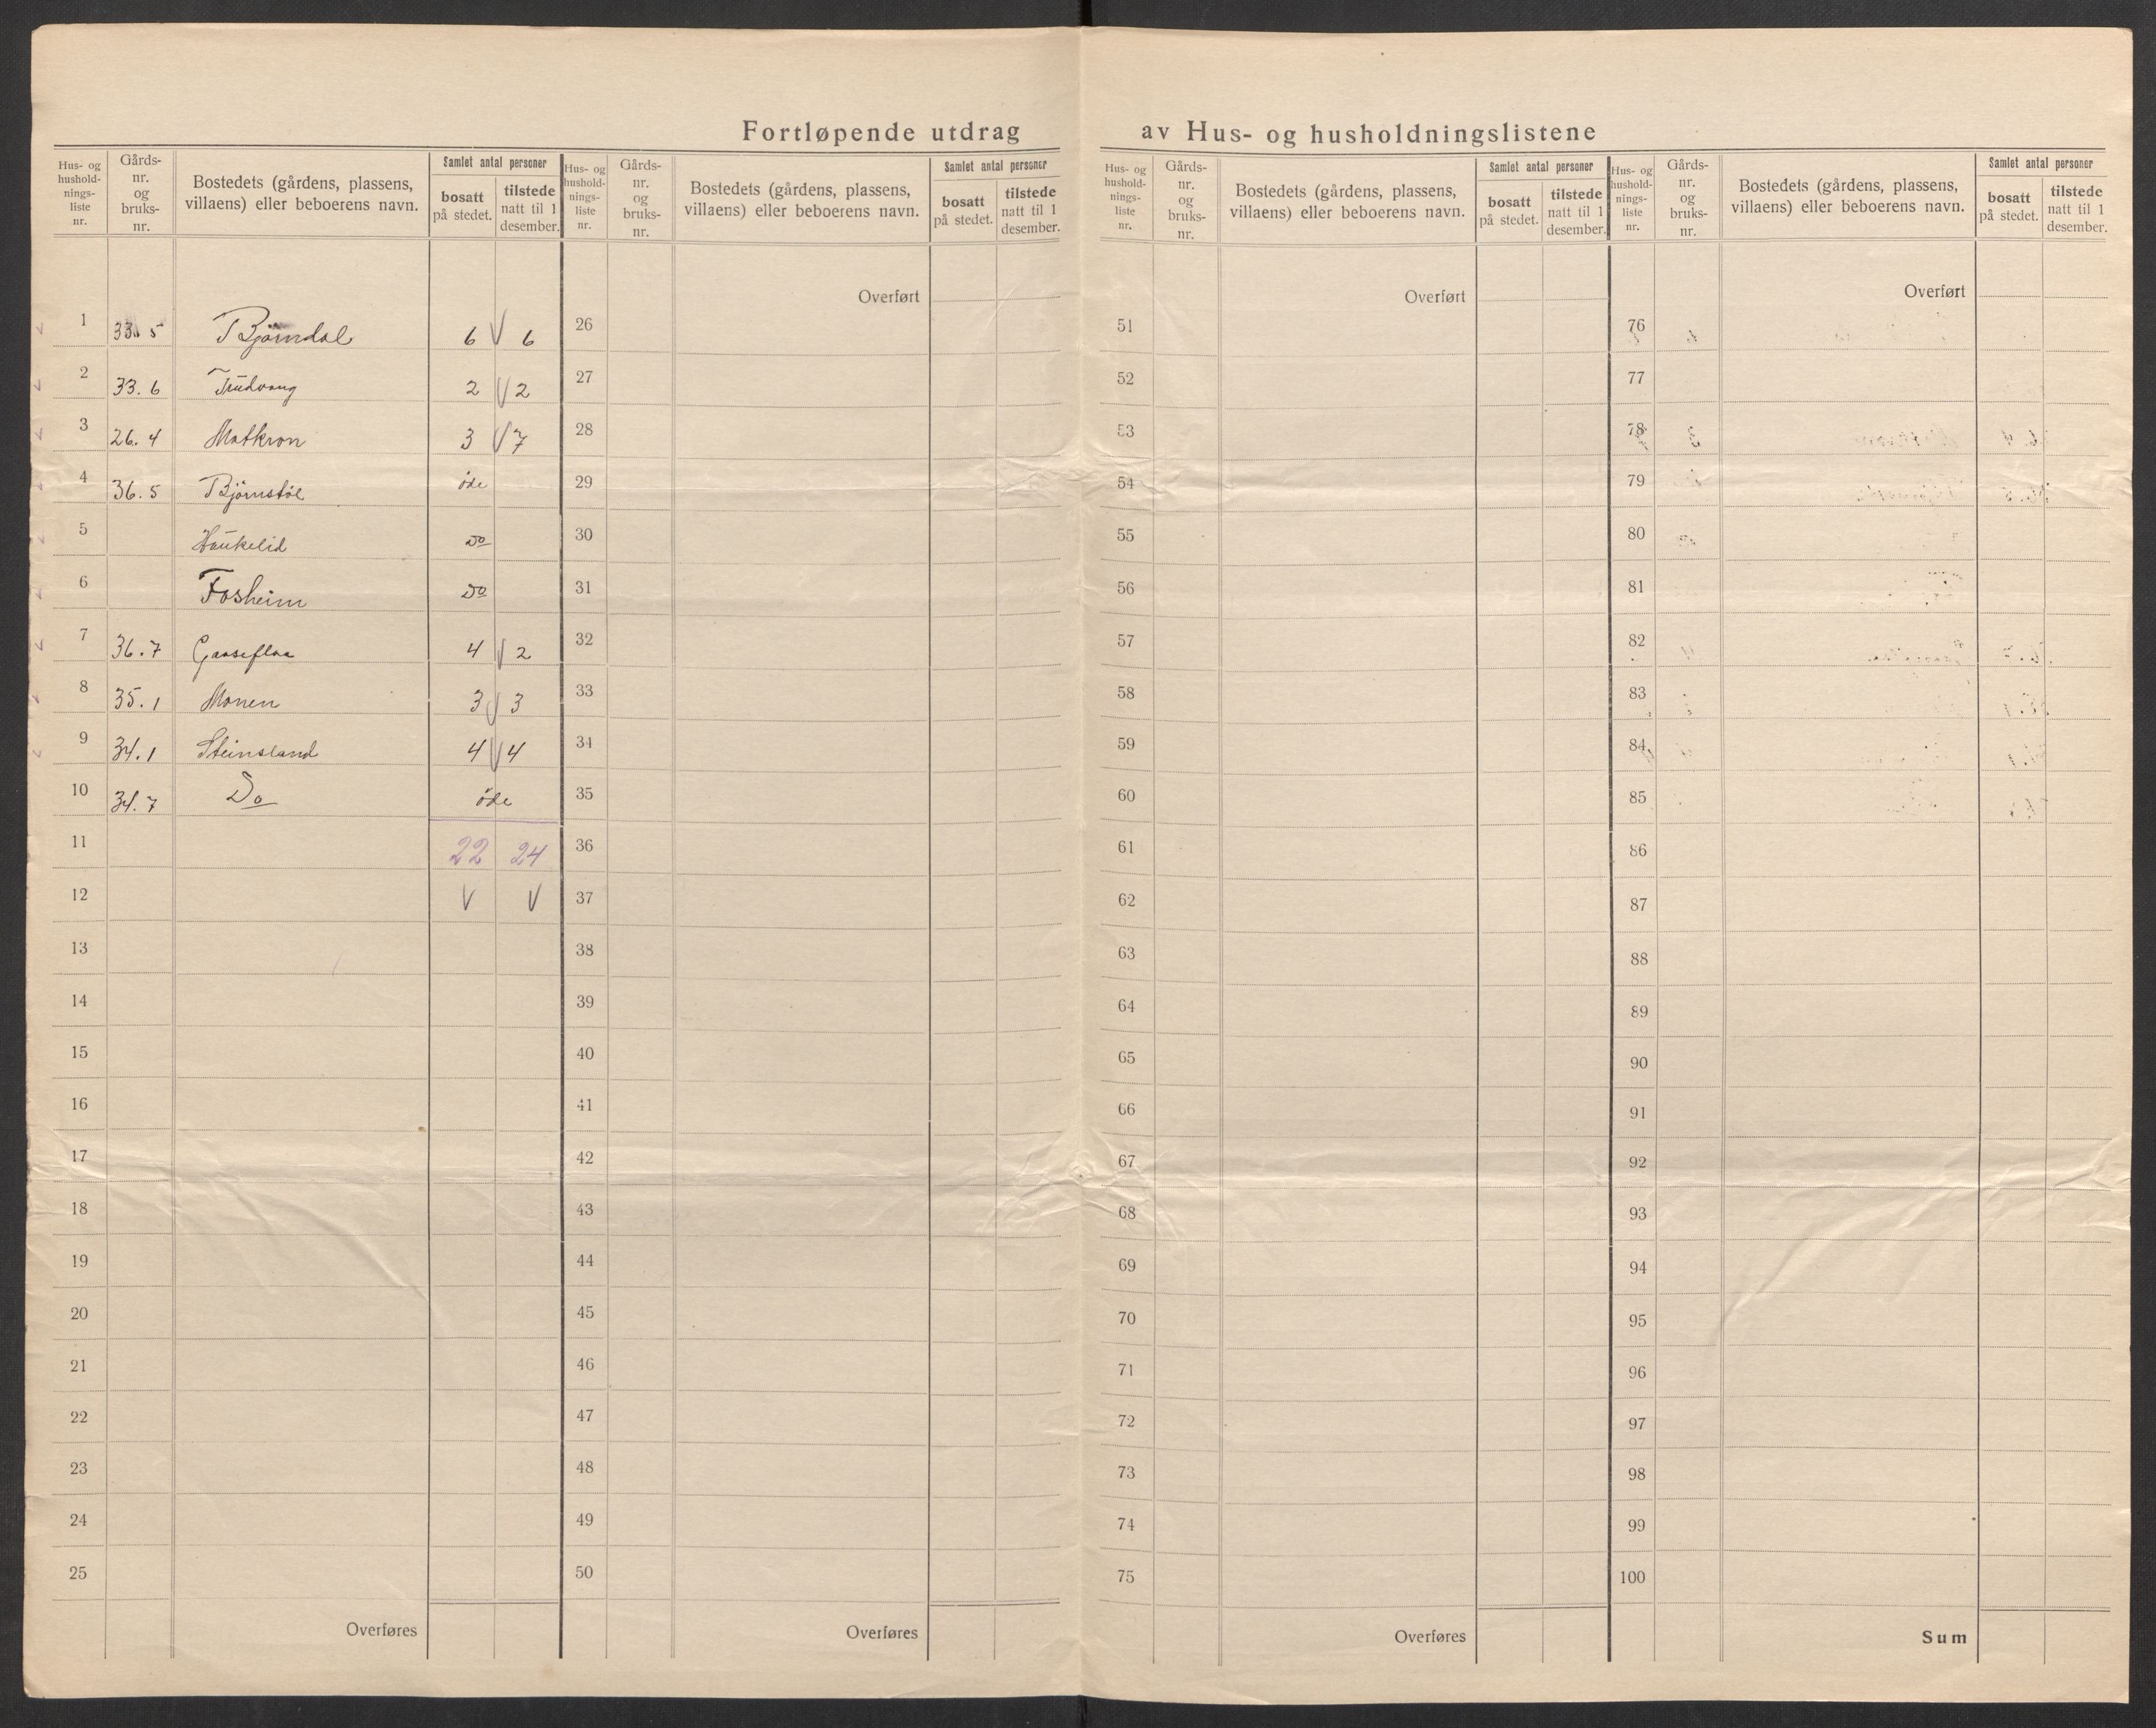 Fortløpende utdrag av Hus- og husholdningslistene
Hus- og husholdnings-liste nr. Gårds-nr. og bruks-nr. Bostedets (gårdens, plassens, villaens) eller beboerens navn. Samlet antal personer bosatt på stedet. tilstede natt til 1 desember.
Hus- og husholdnings-liste nr. Gårds-nr. og bruks-nr. Bostedets (gårdens, plassens, villaens) eller beboerens navn. Samlet antal personer bosatt på stedet. tilstede natt til 1 desember.
Hus- og husholdnings-liste nr. Gårds-nr. og bruks-nr. Bostedets (gårdens, plassens, villaens) eller beboerens navn. Samlet antal personer bosatt på stedet. tilstede natt til 1 desember.
Hus- og husholdnings-liste nr. Gårds-nr. og bruks-nr. Bostedets (gårdens, plassens, villaens) eller beboerens navn. Samlet antal personer bosatt på stedet. tilstede natt til 1 desember.
Overført Overført Overført
1 33. 5 Bjørndal 6 V 6 26 51 76
2 33. 6 Trudvang 2 V 2 27 52 77
3 26. 4 Motkron 3 V 7 28 53 78
4 36. 5 Bjørnstøl øde 29 54 79
5 Haukelid Do 30 55 80
6 Fosheim Do 31 56 81
7 36. 7 Gaaseflaa 4 V 2 32 57 82
8 35. 1 Monen 3 V 3 33 58 83
9 34. 1 Steinsland 4 V 4 34 59 84
10 34. 7 Do øde 35 60 85
11 22 24 36 61 86
12 V V 37 62 87
13 38 63 88
14 39 64 89
15 40 65 90
16 41 66 91
17 42 67 92
18 43 68 93
19 44 69 94
20 45 70 95
21 46 71 96
22 47 72 97
23 48 73 98
24 49 74 99
25 50 75 100
Overføres Overføres Overføres Sum